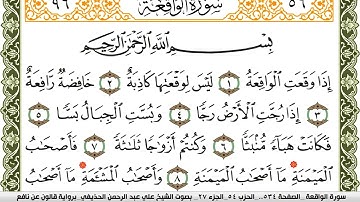 ٩٦ سُورَةُ الوَاقِعَةِ ٥٦
بِسْمِ اللَّهِ الرَّحْمَٰنِ الرَّحِيمِ
إِذَا وَقَعَتِ الْوَاقِعَةُ ١ لَيْسَ لِوَقْعَتِهَا كَاذِبَةٌ ٢ خَافِضَةٌ رَافِعَةٌ
٣ إِذَا رُجَّتِ الْأَرْضُ رَجًّا ٤ وَبُسَّتِ الْجِبَالُ بَسًّا ٥
فَكَانَتْ هَبَاءً مُنْبَثًّا ٦ وَكُنْتُمْ أَزْوَاجًا ثَلَاثَةً ٧ فَأَصْحَابُ
الْمَيْمَنَةِ مَا أَصْحَابُ الْمَيْمَنَةِ ٨ وَأَصْحَابُ الْمَشْئَمَةِ مَا أَصْحَابُ
سورة الواقعة.. الصفحة ٥٣٤.. الحزب ٥٤.. الجزء ٢٧.. بصوت الشيخ علي عبد الرحمن الحذيفي.. برواية قالون عن نافع